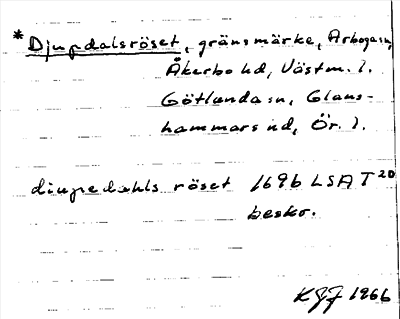 * Djupdalsröset, gränsmärke, Arboga sn,
Åkerbo hd, Västm. l.
Götlunda sn, Glans-
hammars hd, Ör. l.
diupedahls röset 1696 LSA T 20
beskr.
KGF 1966